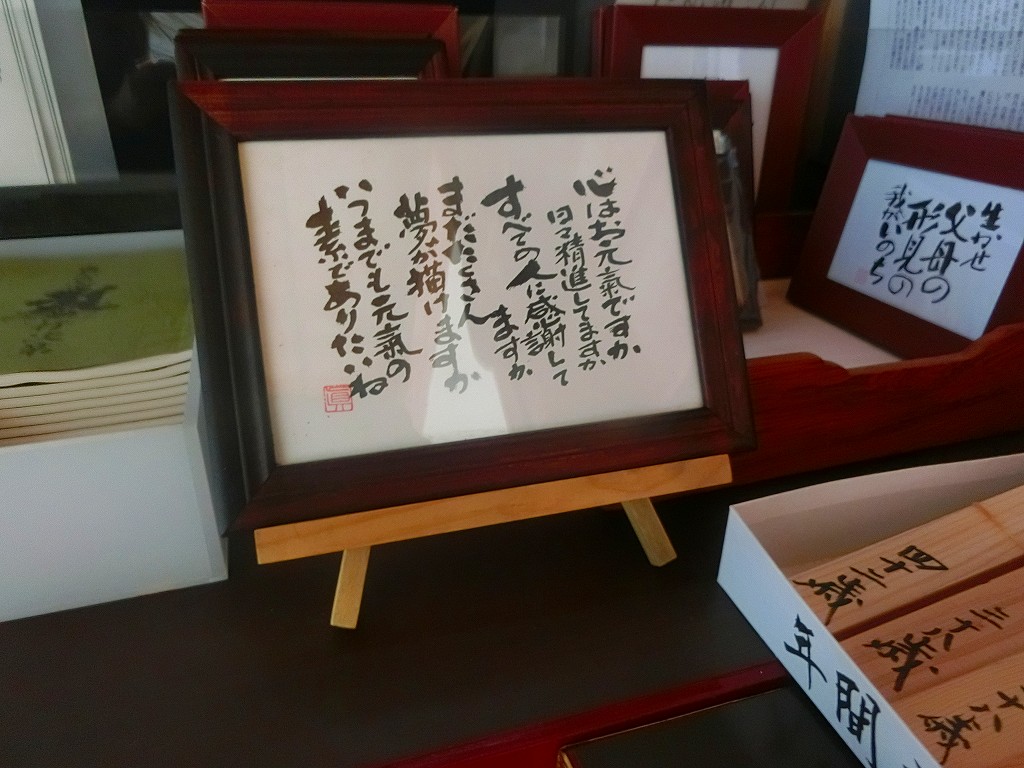 心はお元氣ですか
日々精進してますか
すべての人に感謝して
ますか
まだたくさん
夢が描けますか
いつまでも元氣の
素でありたいね
眞
生かせ
父母の
形見の
我がいのち
四十二歳
三十八歳
十八歳
年間